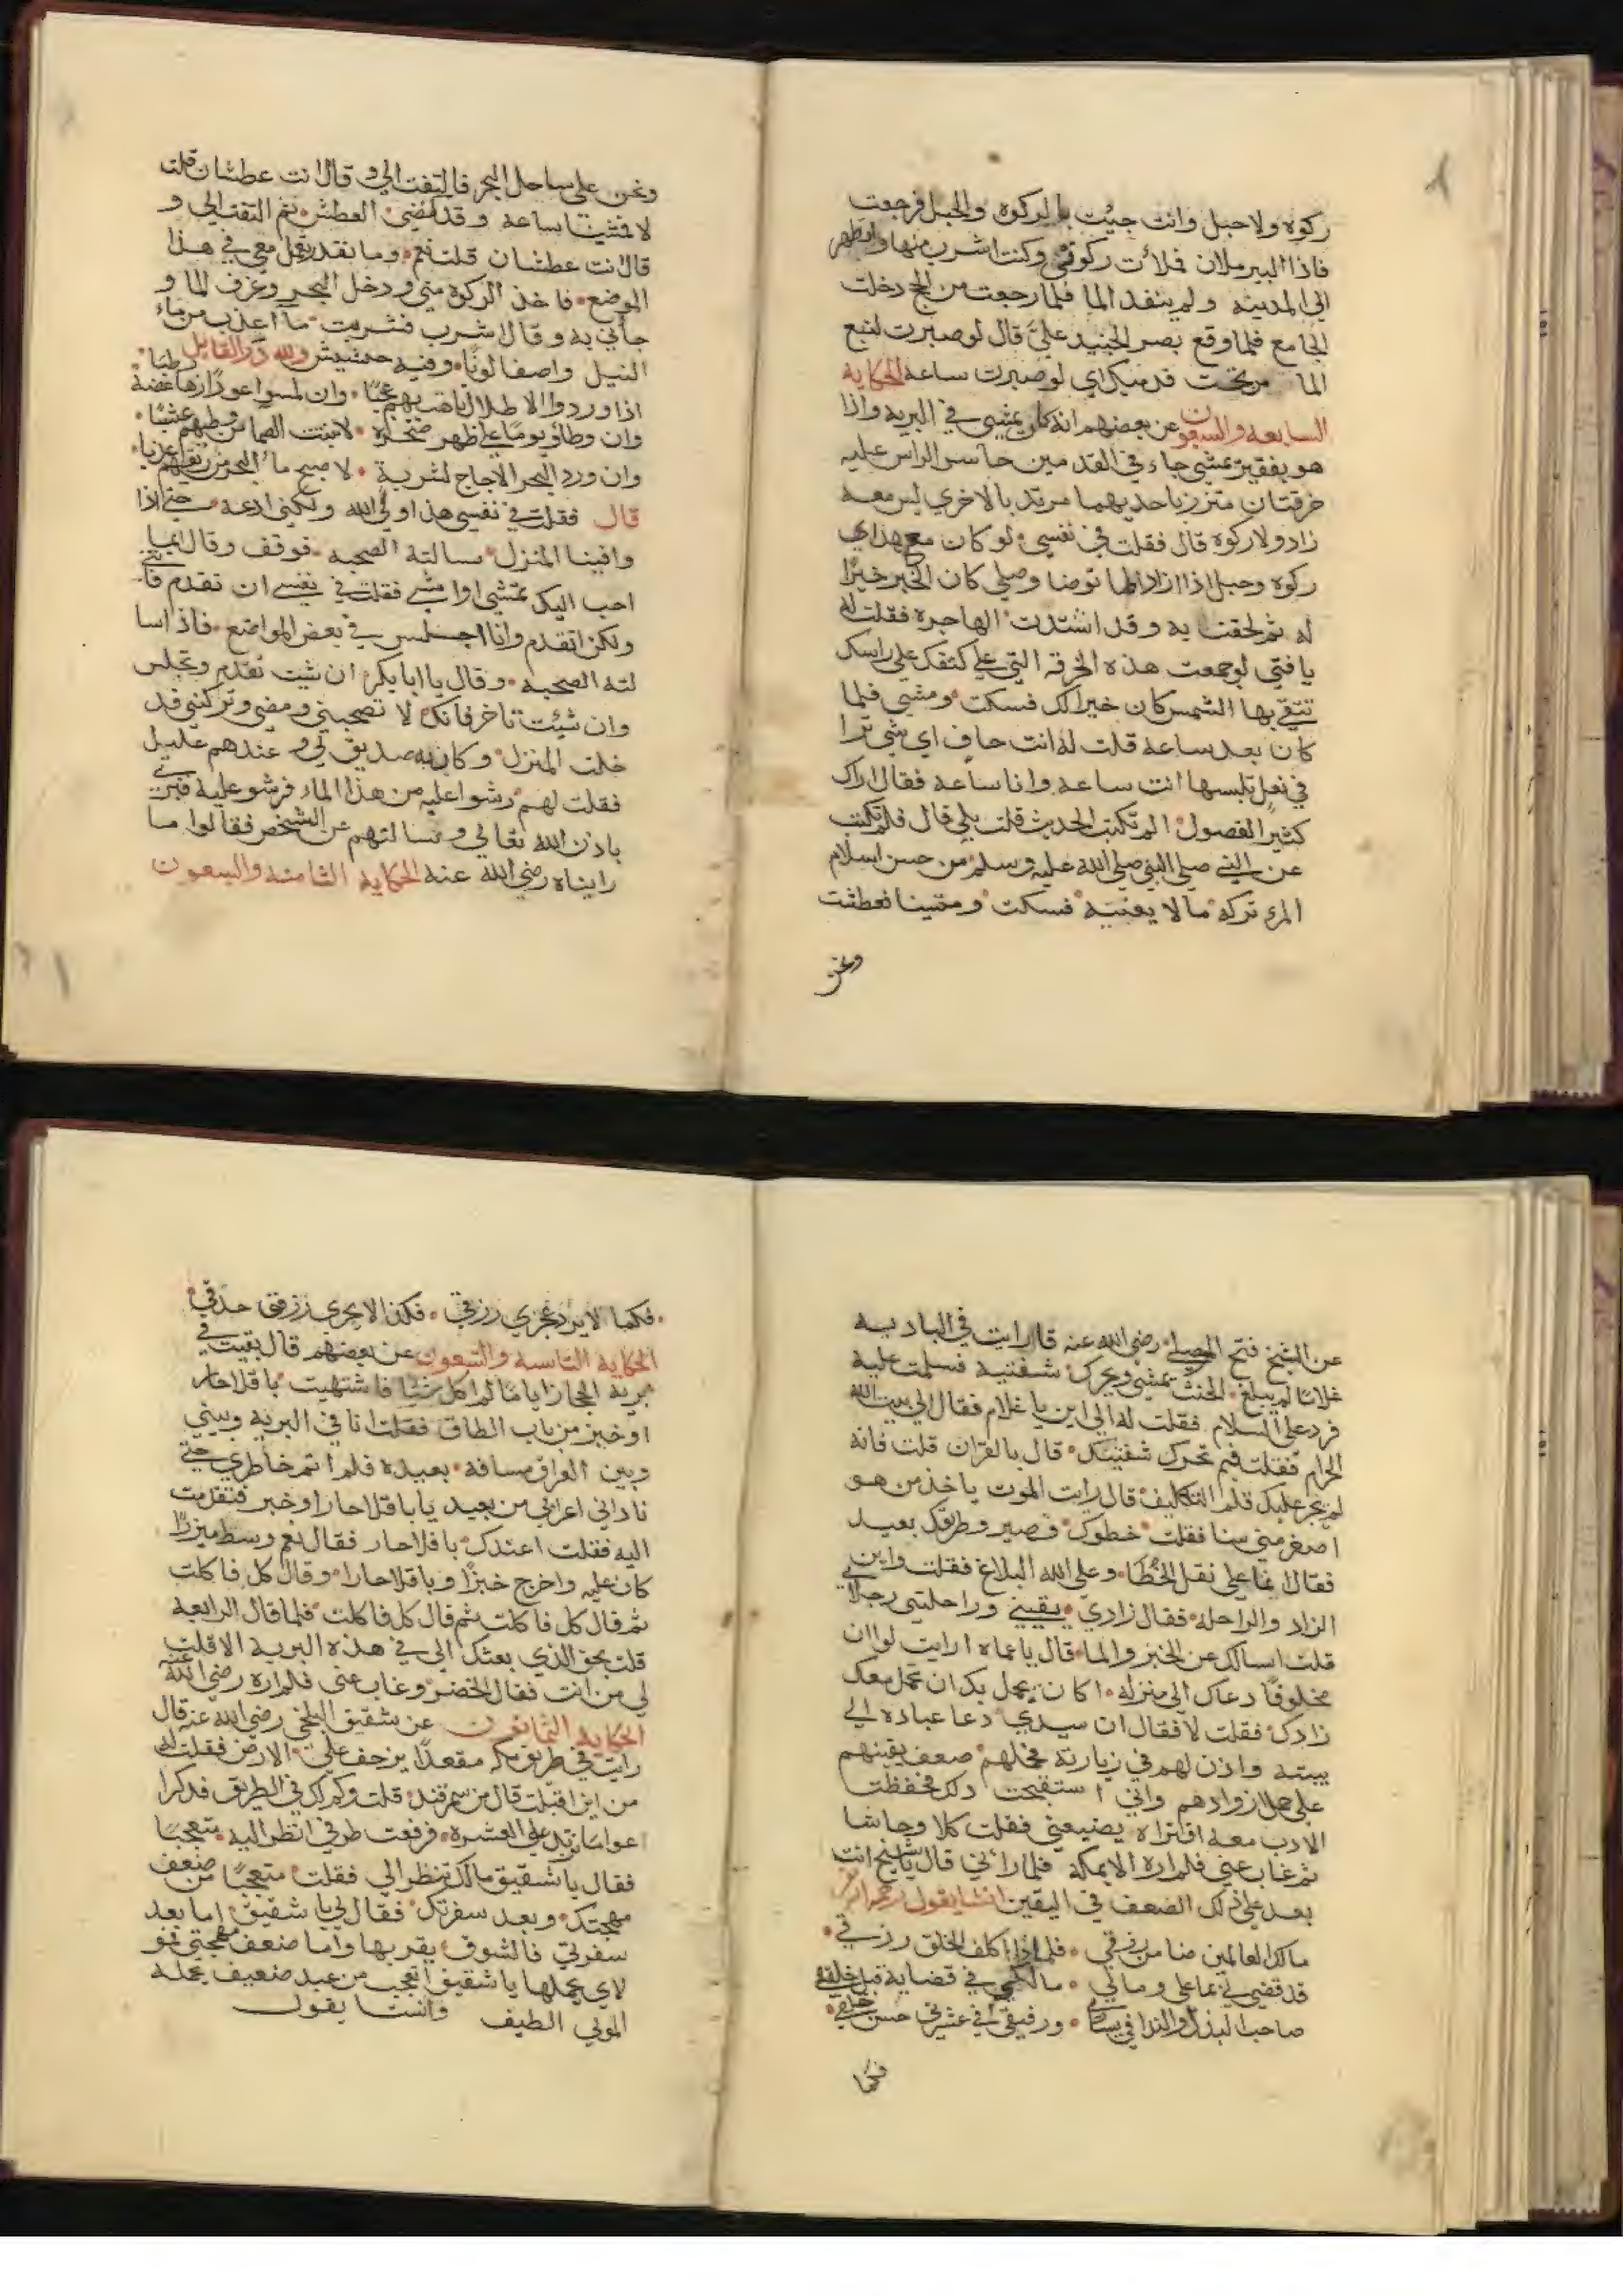 ركوه ولا حبل وانت جيت بالركوه والحبل فرجعت
فاذا البير ملان فملات ركوتي وكنت اشرب منها واتطهر
الي المدينه ولم ينفد الما فلما رجعت من الحج دخلت
الجامع فلما وقع بصر الجنيد عليّ قال لو صبرت لنبع
الما من تحت قدميك اي لو صبرت ساعه الحكايه
السابعه والسبعون عن بعضهم انه كان يمشي في البريه واذا
هو بفقير يمشي حافي القدمين حاسر الراس عليه
خرقتان متزر باحديهما مرتد بالاخري ليس معه
زاد ولا ركوه قال فقلت في نفسي لو كان مع هذا
ركوه وحبل اذا اراد الما توضا وصلي كان الخير خيرًا
له ثم لحقت به وقد اشتدت الهاجره فقلت له
يا فتي لو جمعت هذه الخرقه التي علي كتفك علي راسك
تتقي بها الشمس كان خيرا لك فسكت ومشي فلما
كان بعد ساعه قلت له انت حاف اي شي ترا
في نعل تلبسها انت ساعه وانا ساعه فقال اراك
كثير الفضول الم تكتب الحديث قلت بلي قال فلم تكتب
عن النبي صلي النبي صلي الله عليه وسلم من حسن اسلام
المرء تركه ما لا يعنيه فسكت ومشينا فعطشت
ونحن
ونحن علي ساحل البحر فالتفت الي وقال انت عطشان قلت
لا فمشينا ساعه وقد العطش ثم التفت الي و
قال انت عطشان قلت نعم وما تقدر تعمل معي في هذا
الموضع فاخذ الركوه مني ودخل البحر وغرف الما و
جاني به وقال اشرب فشربت ما اعذب من ماء
النيل واصفا لونًا وفيه حشيش ولله در القايل
اذا وردوا الاطلال تاهت بهم عجبًا وان لمسوا عودًا زها غصنه رطبا
وان وطاو يومًا علي ظهر صخره لانبتت الصما من وطيهم عشبًا
وان ورد البحر الاجاج لشربة لاصبح ما البحر من ريقهم عذبا
قال فقلت في نفسي هذا ولي الله ولكني ادعه حتي اذا
وافينا المنزل سالته الصحبه فوقف وقال ايما
احب اليك تمشي او امشي فقلت في نفسي ان تقدم فاتني
ولكن اتقدم وانا اجلس في بعض المواضع فاذا سا
لته الصحبه وقال يا ابا بكر ان شيت تقدم وتجلس
وان شيت تاخر فانك لا تصحبني ومضي وتركني فد
خلت المنزل وكان به صديق لي وعندهم عليل
فقلت لهم رشوا عليه من هذا الماء فرشو عليه فبري
باذن الله تعالي وسالتهم عن الشخص فقالوا ما
رايناه رضي الله عنه الحكايه الثامنه والسبعون
عن الشيخ فتح الموصلي رضي الله عنه قال رايت في الباديه
غلامًا لم يبلغ الحنث يمشي ويحرك شفتيه فسلمت عليه
فرد علي السلام فقلت له الي اين يا غلام فقال الي بيت الله
الحرام فقلت فبم تحرك شفتيك قال بالقران قلت فانه
لم يجر عليك قلم التكليف قال رايت الموت ياخذ من هو
اصغر مني سنا فقلت خطوك قصير وطريقك بعيد
فقال انما علي نقل الخُطَا وعلي الله البلاغ فقلت واين
الزاد والراحله فقال زادي يقيني وراحلتي رجلاي
قلت اسالك عن الخبز والما قال يا عماه ارايت لو ان
مخلوقًا دعاك الي منزله اكان يجمل بك ان تحمل معك
زادك فقلت لا فقال ان سيدي دعا عباده الي
بيته واذن لهم في زيارته فحملهم ضعف يقينهم
علي حمل ازوادهم واني استقبحت ذلك فحفظت
الادب معه افتراه يضيعني فقلت كلا وحاشا
ثم غاب عني فلم اره الا بمكه فلما راني قال يا شيخ انت
بعد علي ذلك الضعف في اليقين انشا يقول
مالك العالمين ضامن رزقي فلماذا اكلف الخلق رزقي
قد قضي لي بما علي ومالي مالكي في قضايه قبل خلقي
صاحب البذل والندا في يساري ورفيقي في عشرتي حسن خلقي
فكما
فكما لا يرد عجزي رزقي فكذا لا يجري رزقي حذقي
الحكايه التاسعه والسبعون عن بعضهم قال بقيت في
بريه الحجاز اياما لم اكل شيا فاشتهيت باقلا حار
او خبز من باب الطاق فقلت انا في البريه وبيني
وبين العراق مسافه بعيده فلم اتم خاطري حتي
ناداني اعرابي من بعيد يا باقلا حارا وخبز فتقدمت
اليه فقلت اعندك باقلا حار فقال نعم وبسط ميزرًا
كان عليه واخرج خبزًا وباقلا حارا وقال كل فاكلت
ثم قال كل فاكلت ثم قال كل فاكلت فلما قال الرابعه
قلت بحق الذي بعثك الي في هذه البريه الا قلت
لي من انت فقال الخضر وغاب عني فلم اره رضي الله عنه
الحكايه الثمانون عن شقيق البلخي رضي الله عنه قال
رايت في طريق مكه مقعدًا يزحف علي الارض فقلت له
من اين اقبلت قال من سمرقند قلت وكم لك في الطريق فذكر
اعواما تزيد علي العشره فرفعت طرفي انظر اليه متعجبًا
فقال يا شقيق مالك تنظر الي فقلت متعجبًا من ضعف
مهجتك وبعد سفرتك فقال لي يا شقيق اما بعد
سفرتي فالشوق يقربها واما ضعف مهجتي فمو
لاي يحملها يا شقيق اتعجب من عبد ضعيف يحمله
المولي الطيف وانشا يقول